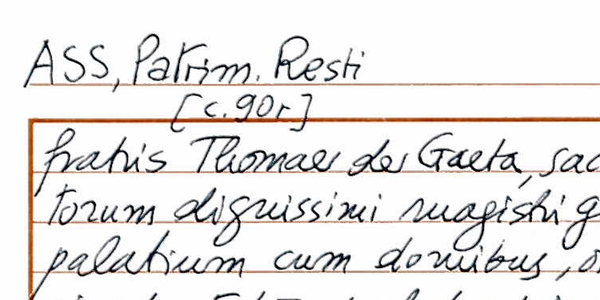 ASS, Patrim. Resti
[c. 90r]
fratris Thomae de Gaeta, sac
torum dignissimi magistri g
palatium cum domibus,